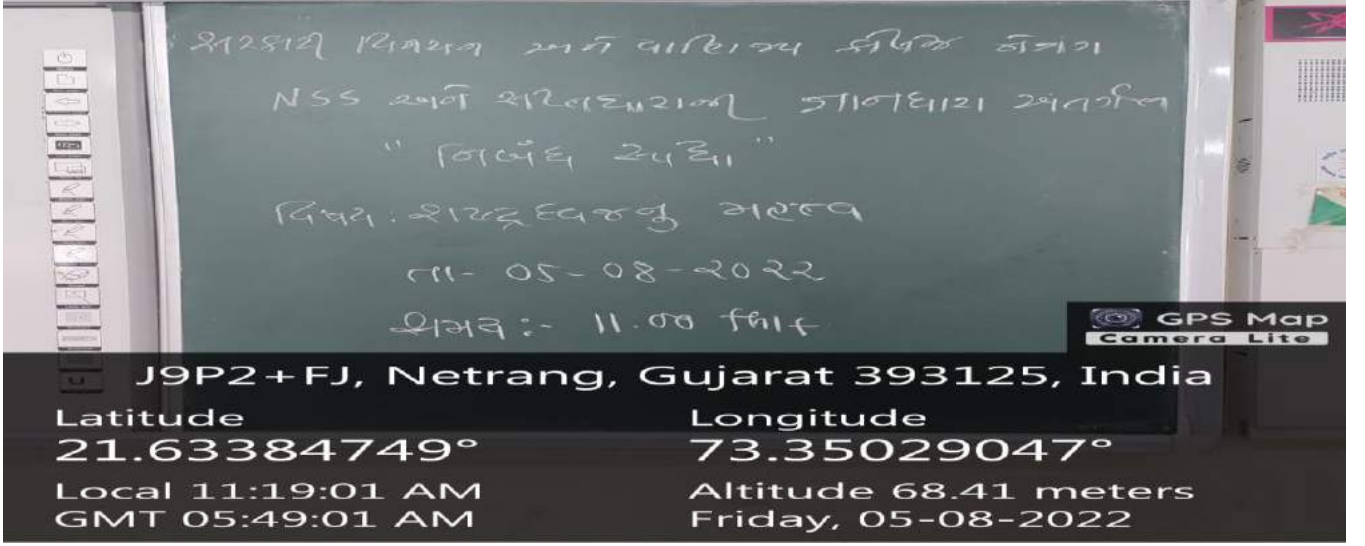 સરકારી વિનયન અને વાણિજ્ય કોલેજ નેત્રંગ
NSS અને સપ્તધારાની જ્ઞાનધારા અંતર્ગત
"નિબંધ સ્પર્ધા"
વિષય : રાષ્ટ્રધ્વજનુ મહત્વ
તા- 05-08-૨0૨૨
સમય :- 11.00
GPS Map
Camera Lite
J9P2+FJ, Netrang, Gujarat 393125, India
Latitude
21.63384749°
Longitude
73.35029047°
Local 11:19:01 AM
GMT 05:49:01 AM
Altitude 68.41 meters
Friday, 05-08-2022